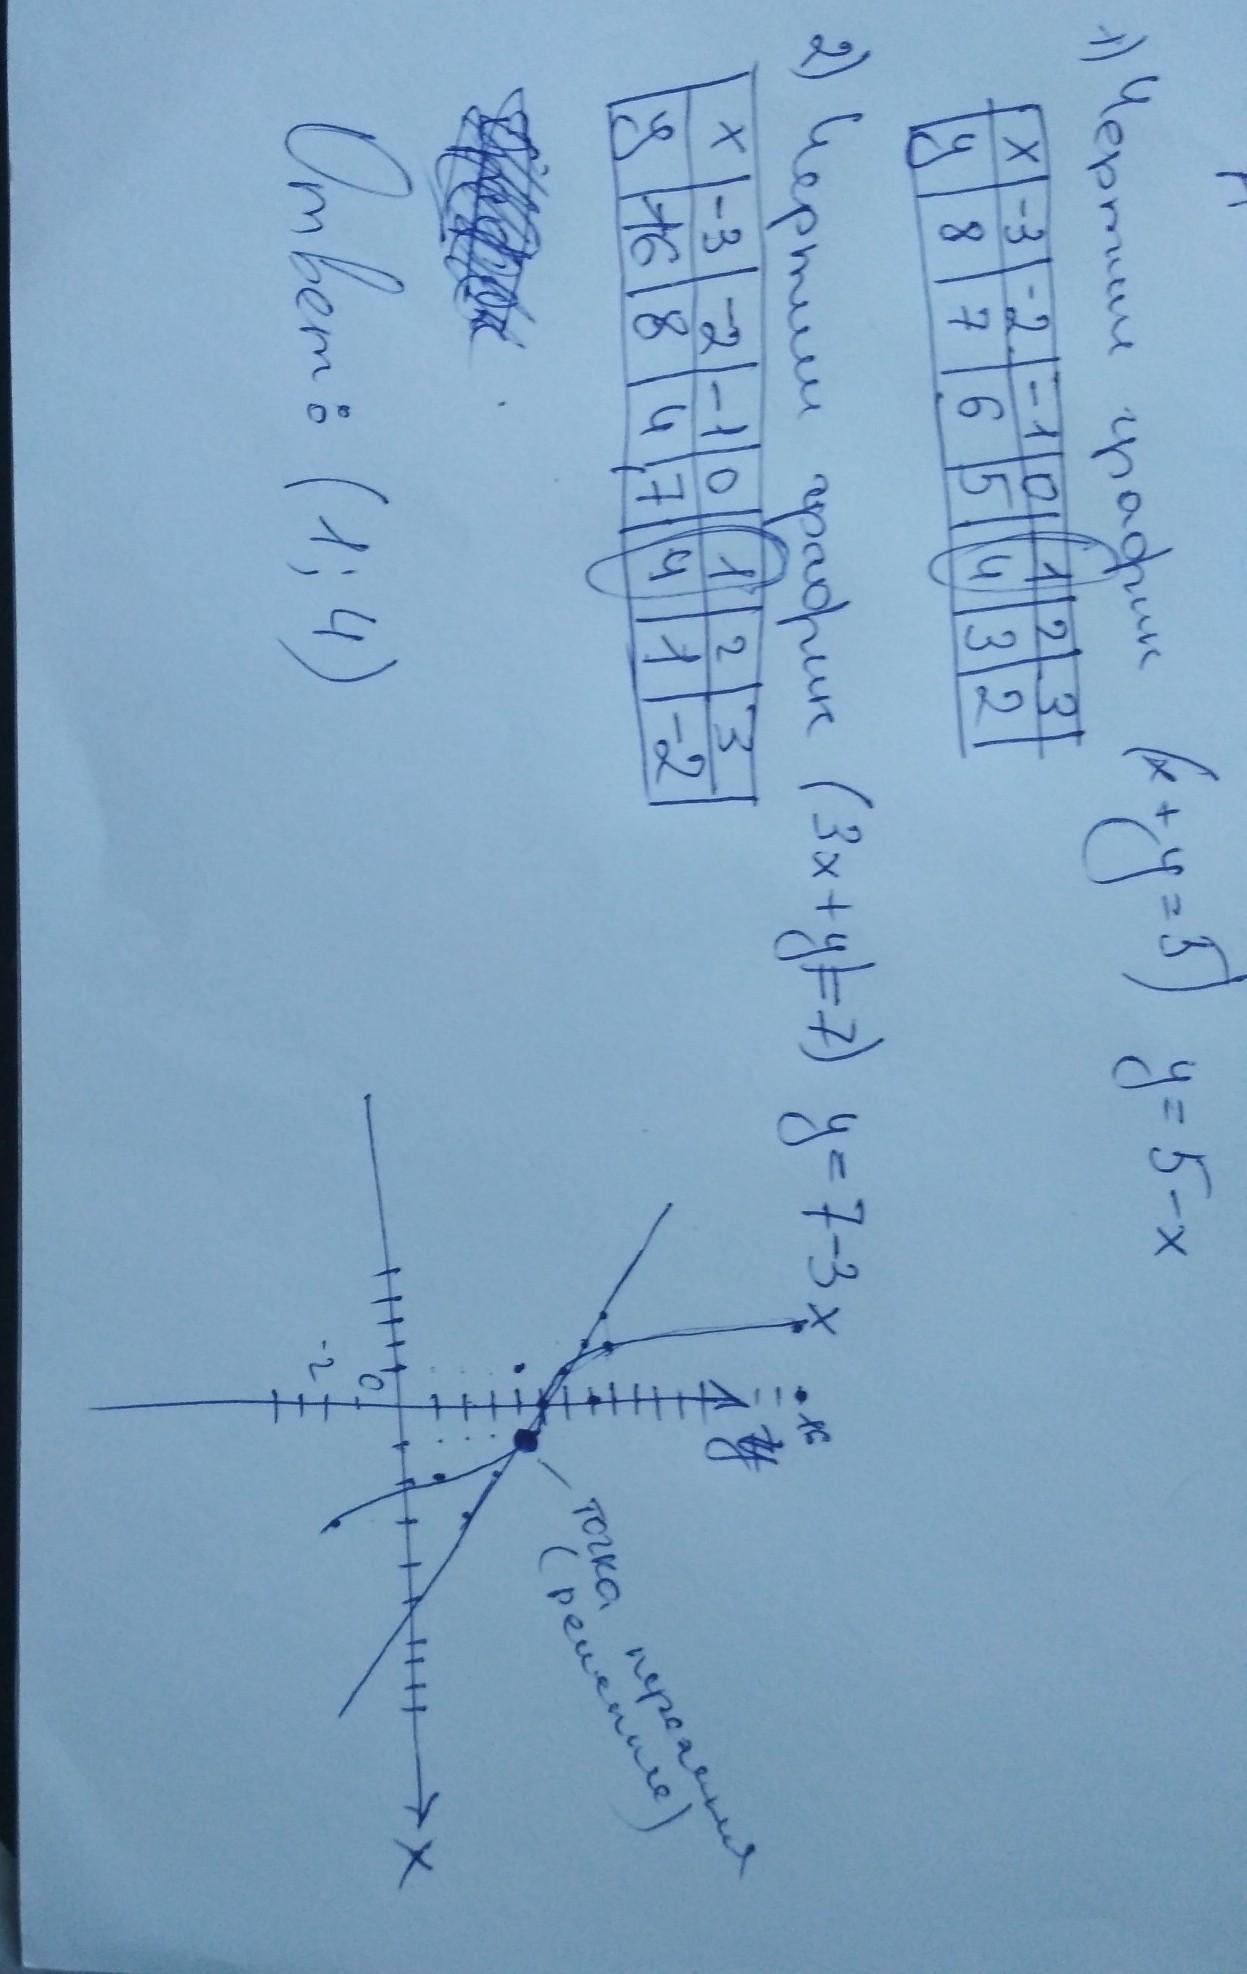 1) Чертим график (x+y=5) y=5-x
x -3 -2 -1 0 1 2 3
y 8 7 6 5 4 3 2
2) Чертим график (3x+y=7) y=7-3x
x -3 -2 -1 0 1 2 3
y 16 8 4 7 4 1 -2
Ответ: (1; 4)
y
16
-2
0
x
точка пересечения
(решение)